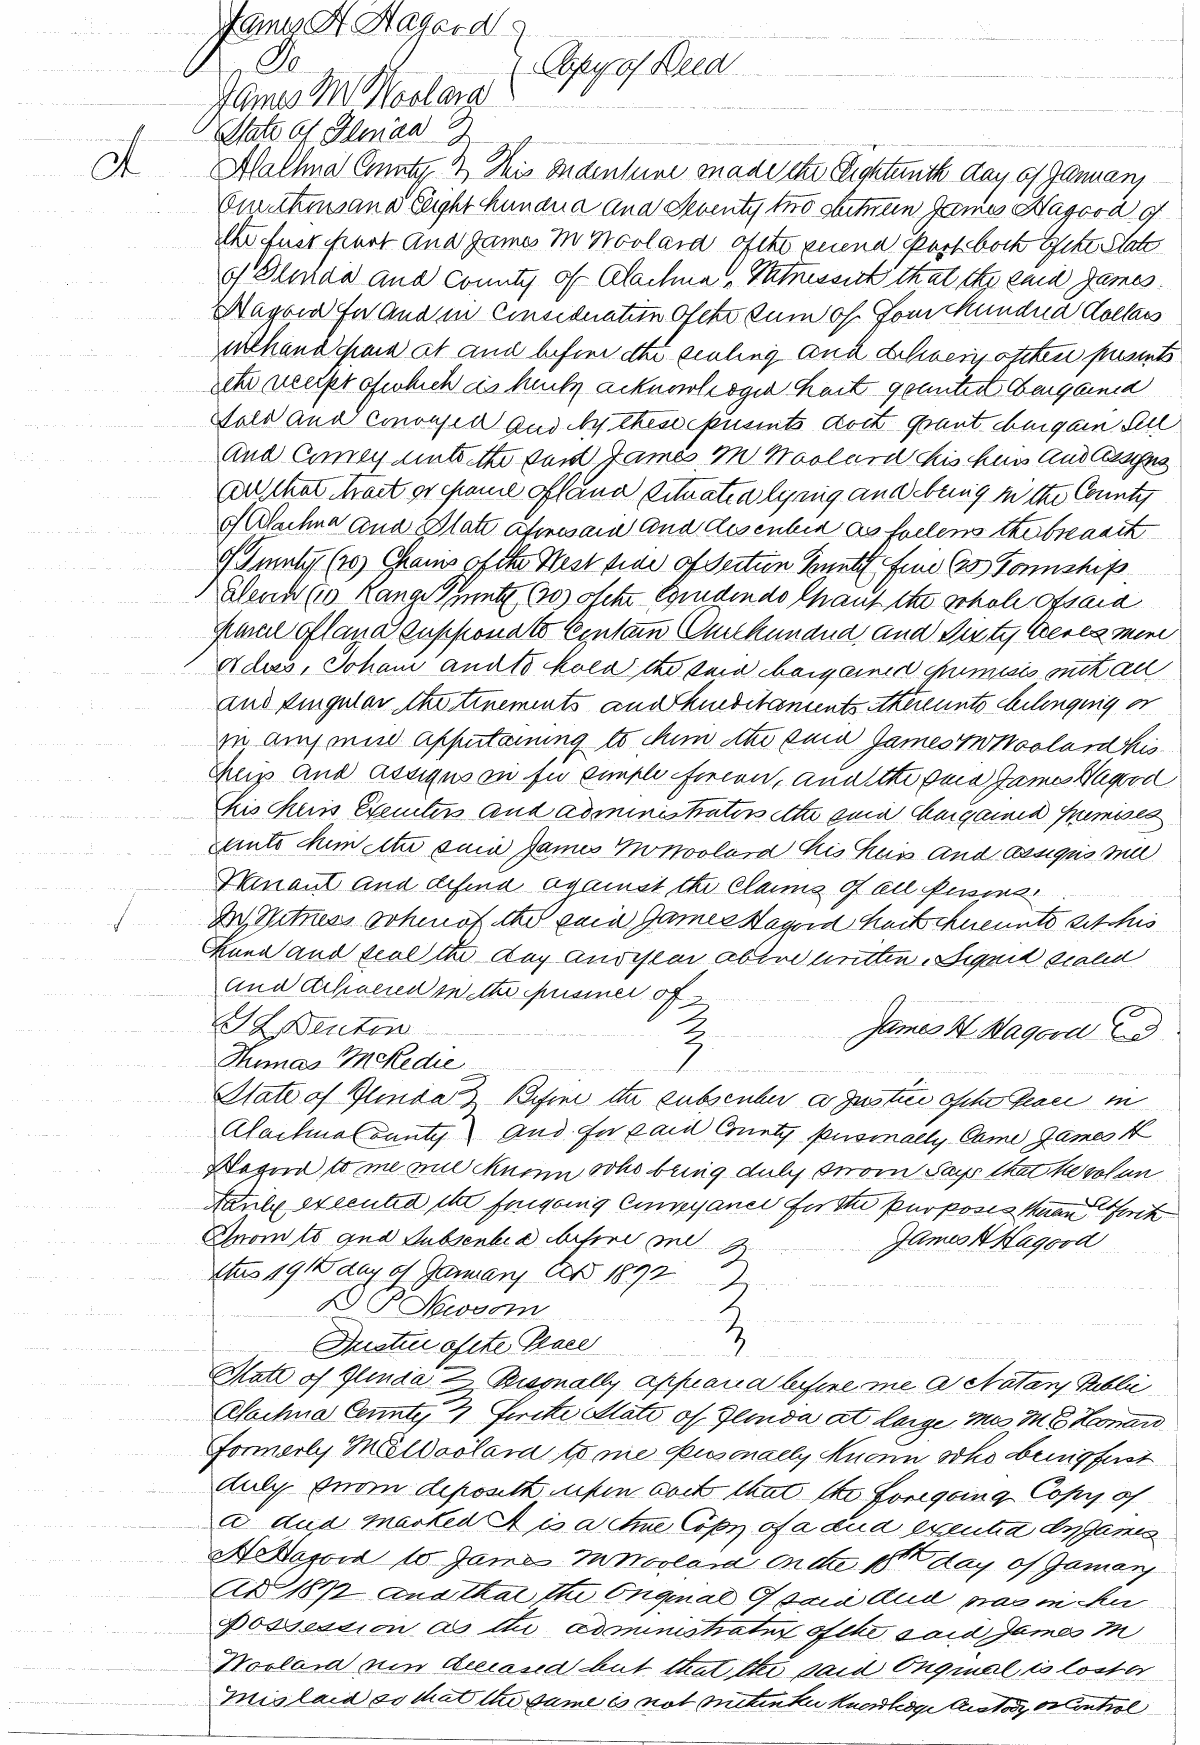 James H Hagood
To
Copy of Deed
James M Woolard
State of Florida
A
Alachua County This Indenture made the Eighteenth day of January
One thousand Eight hundred and Seventy two between James Hagood of
the first part and James M Woolard of the second part both of the State
of Florida and County of Alachua, Witnesseth that the said James
Hagood for and in Consideration of the sum of four hundred dollars
in hand paid at and before the sealing and delivery of these presents
the receipt of which is hereby acknowledged hath granted bargained
sold and conveyed and by these presents doth grant bargain Sell
and Convey unto the said James M Woolard his heirs and assigns
all that tract or parcel of land situated lying and being in the County
of Alachua and State aforesaid and described as follows the breadth
of Twenty (20) Chains of the West side of Section Twenty five (25) Township
Eleven (11) Range Twenty (20) of the Arredondo Grant the whole of said
parcel of land supposed to Contain One hundred and Sixty Acres more
or less, To have and to hold the said bargained premises with all
and singular the tenements and hereditaments thereunto belonging or
in any wise appertaining to him the said James M Woolard his
heirs and assigns in fee simple forever, and the said James Hagood
his heirs Executors and administrators the said bargained premises
unto him the said James M Woolard his heirs and assigns will
Warrant and defend against the Claims of all persons.
In Witness whereof the said James Hagood hath hereunto set his
hand and seal the day and year above written. Signed sealed
and delivered in the presence of
G L Denton James H Hagood
Thomas McRedie
State of Florida Before the subscriber a Justice of the Peace in
Alachua County and for said County personally Came James H
Hagood to me well known who being duly sworn says that he volun
tarily executed the foregoing Conveyance for the purposes therein set forth
Sworn to and Subscribed before me James H Hagood
this 19th day of January AD 1892
D P Newsom
Justice of the Peace
State of Florida Personally appeared before me a Notary Public
Alachua County for the State of Florida at large Mrs M E
formerly M E Woolard to me personally known who being first
duly sworn deposeth upon oath that the foregoing Copy of
a deed marked A is a true Copy of a deed executed by James
H Hagood to James M Woolard on the 18th day of January
AD 1872 and that the Original of said deed was in her
possession as the administratrix of the said James M
Woolard now deceased but that the said Original is lost or
mislaid so that the same is not within her knowledge Custody or Control